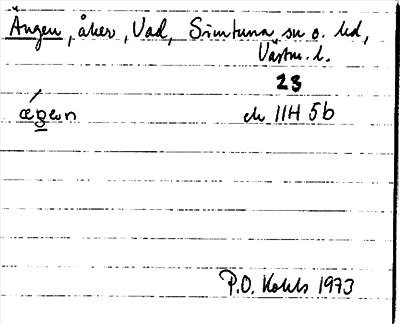 Ängen, åker, Vad, Simtuna sn o. hd,
Västm. l.
23
ǽgeon
ek 11H 5b
P.O. Kohls 1973